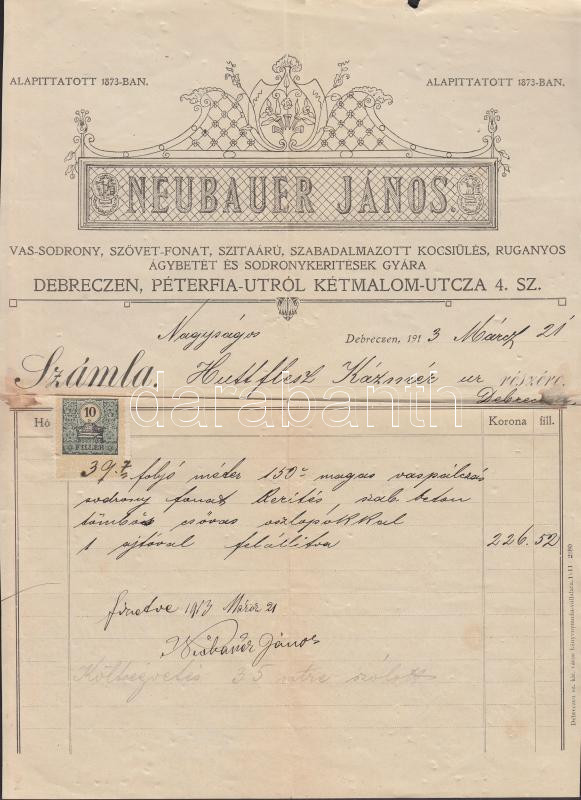 ALAPITTATOTT 1873-BAN.
ALAPITTATOTT 1873-BAN.
NEUBAUER JÁNOS.
VAS-SODRONY, SZÖVET-FONAT, SZITAÁRÚ, SZABADALMAZOTT KOCSIÜLÉS, RUGANYOS
ÁGYBETÉT ÉS SODRONYKERITÉSEK GYÁRA
DEBRECZEN, PÉTERFIA-UTRÓL KÉTMALOM-UTCZA 4. SZ.
Nagyságos Debreczen, 1913 Márcz 21
Számla, Huttflesz Kázmér ur részére.
Debreczen
Hó Korona fill.
10
FILLÉR
39.7 folyó méter 150 magas vaspálczás
sodrony fonat Kerités szab. beton
tömbös csöves oszlopokkal
1 ajtóval felállitva 226.52
Fizetve 1913 Márcz 21
Neubauer János
Költségvetés 35 mtre szólott
darabanth
Debreczen sz. kir. város könyvnyomda-vállalata. 11-11 2980